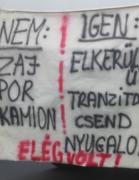 NEM:
ZAJ
POR
KAMION
IGEN:
ELKERÜ
CSEND
NYUGALO
ELÉG VOLT!